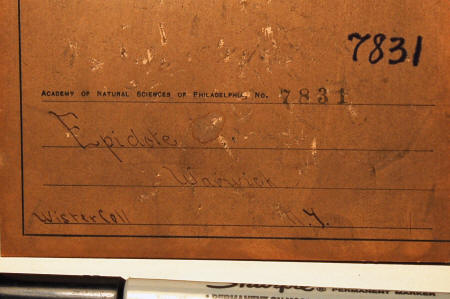 7831
ACADEMY OF NATURAL SCIENCES OF PHILADELPHIA, No. 7831
Epidote
Warwick
Wister Coll N.Y.
Sharpie® PERMANENT MARKER
PERMANENT